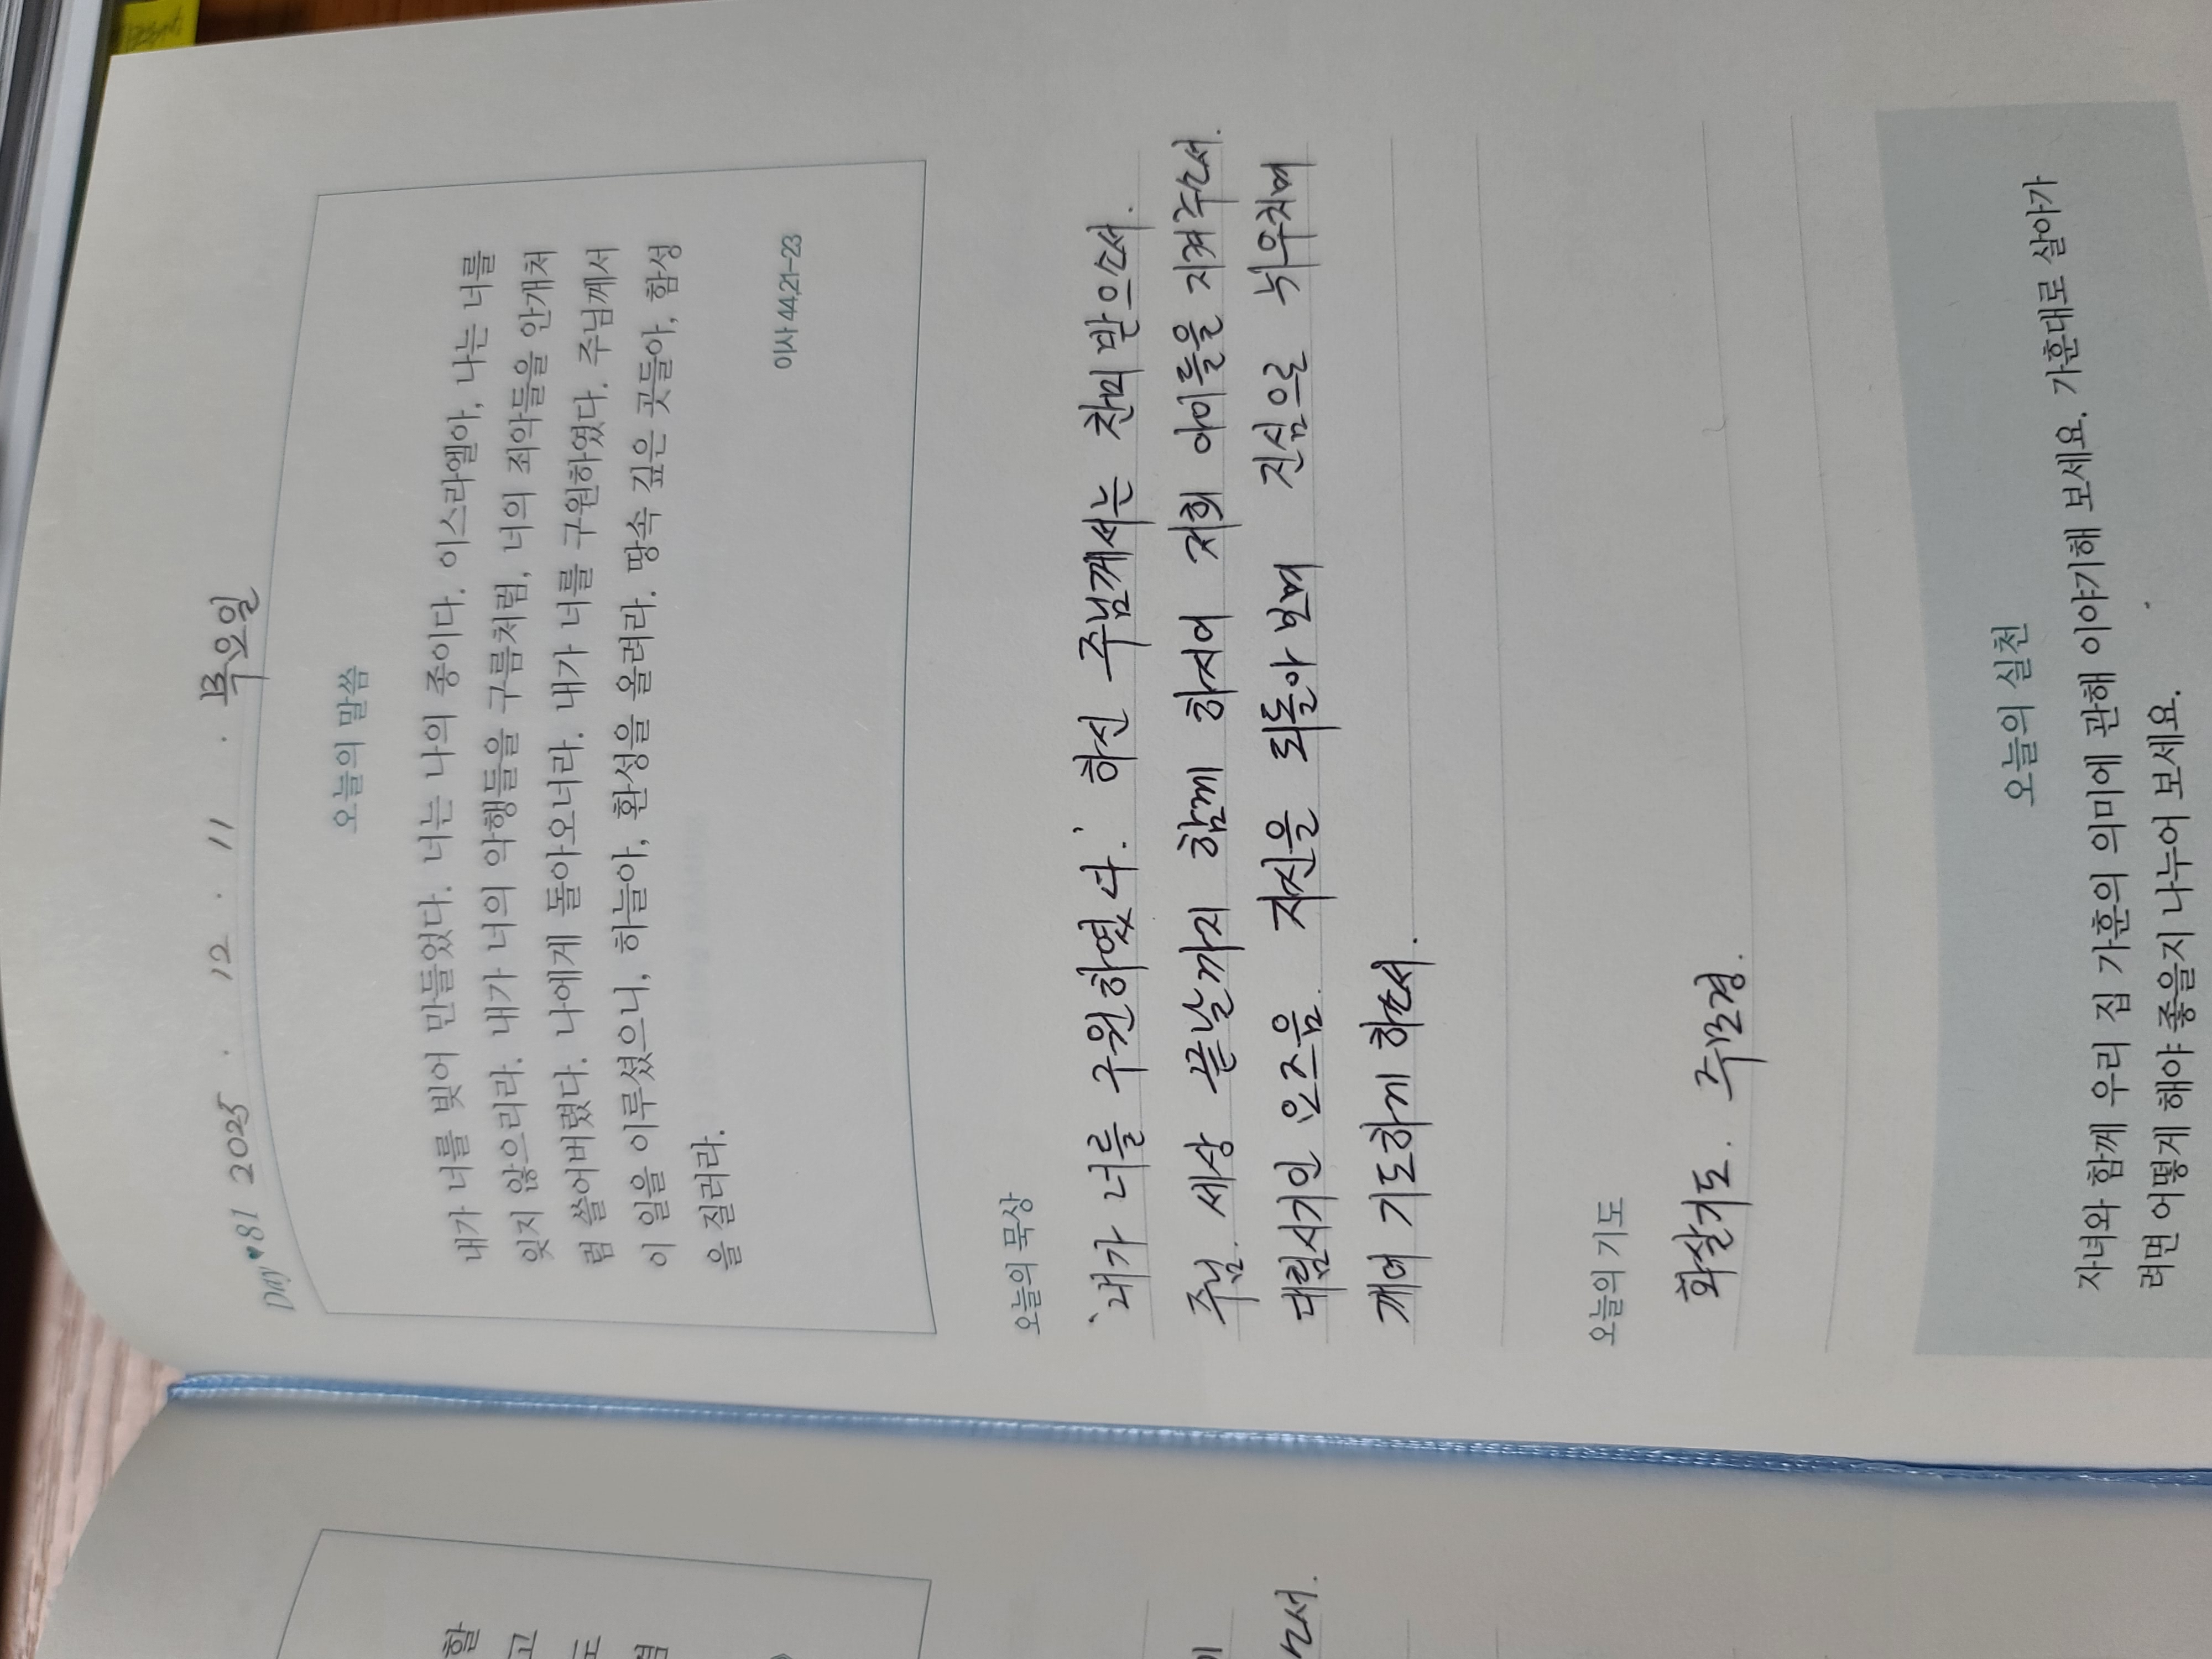 DAY♥81 2025 . 12 . 11 . 목요일
오늘의 말씀
내가 너를 빚어 만들었다. 너는 나의 종이다. 이스라엘아, 나는 너를
잊지 않으리라. 내가 너의 악행들을 구름처럼, 너의 죄악들을 안개처
럼 쓸어버렸다. 나에게 돌아오너라. 내가 너를 구원하였다. 주님께서
이 일을 이루셨으니, 하늘아, 환성을 올려라. 땅속 깊은 곳들아, 함성
을 질러라.
이사 44,21-23
오늘의 묵상
'내가 너를 구원하였다.' 하신 주님께서는 찬미받으소서.
주님. 세상 끝날까지 함께 하시어 저희 아이들을 지켜주소서.
대림시기인 요즈음. 자신을 되돌아보며 진심으로 뉘우치며
깨어 기도하게 하소서.
오늘의 기도
화살기도. 주모경.
오늘의 실천
자녀와 함께 우리 집 가훈의 의미에 관해 이야기해 보세요. 가훈대로 살아가
려면 어떻게 해야 좋을지 나누어 보세요.
할
고